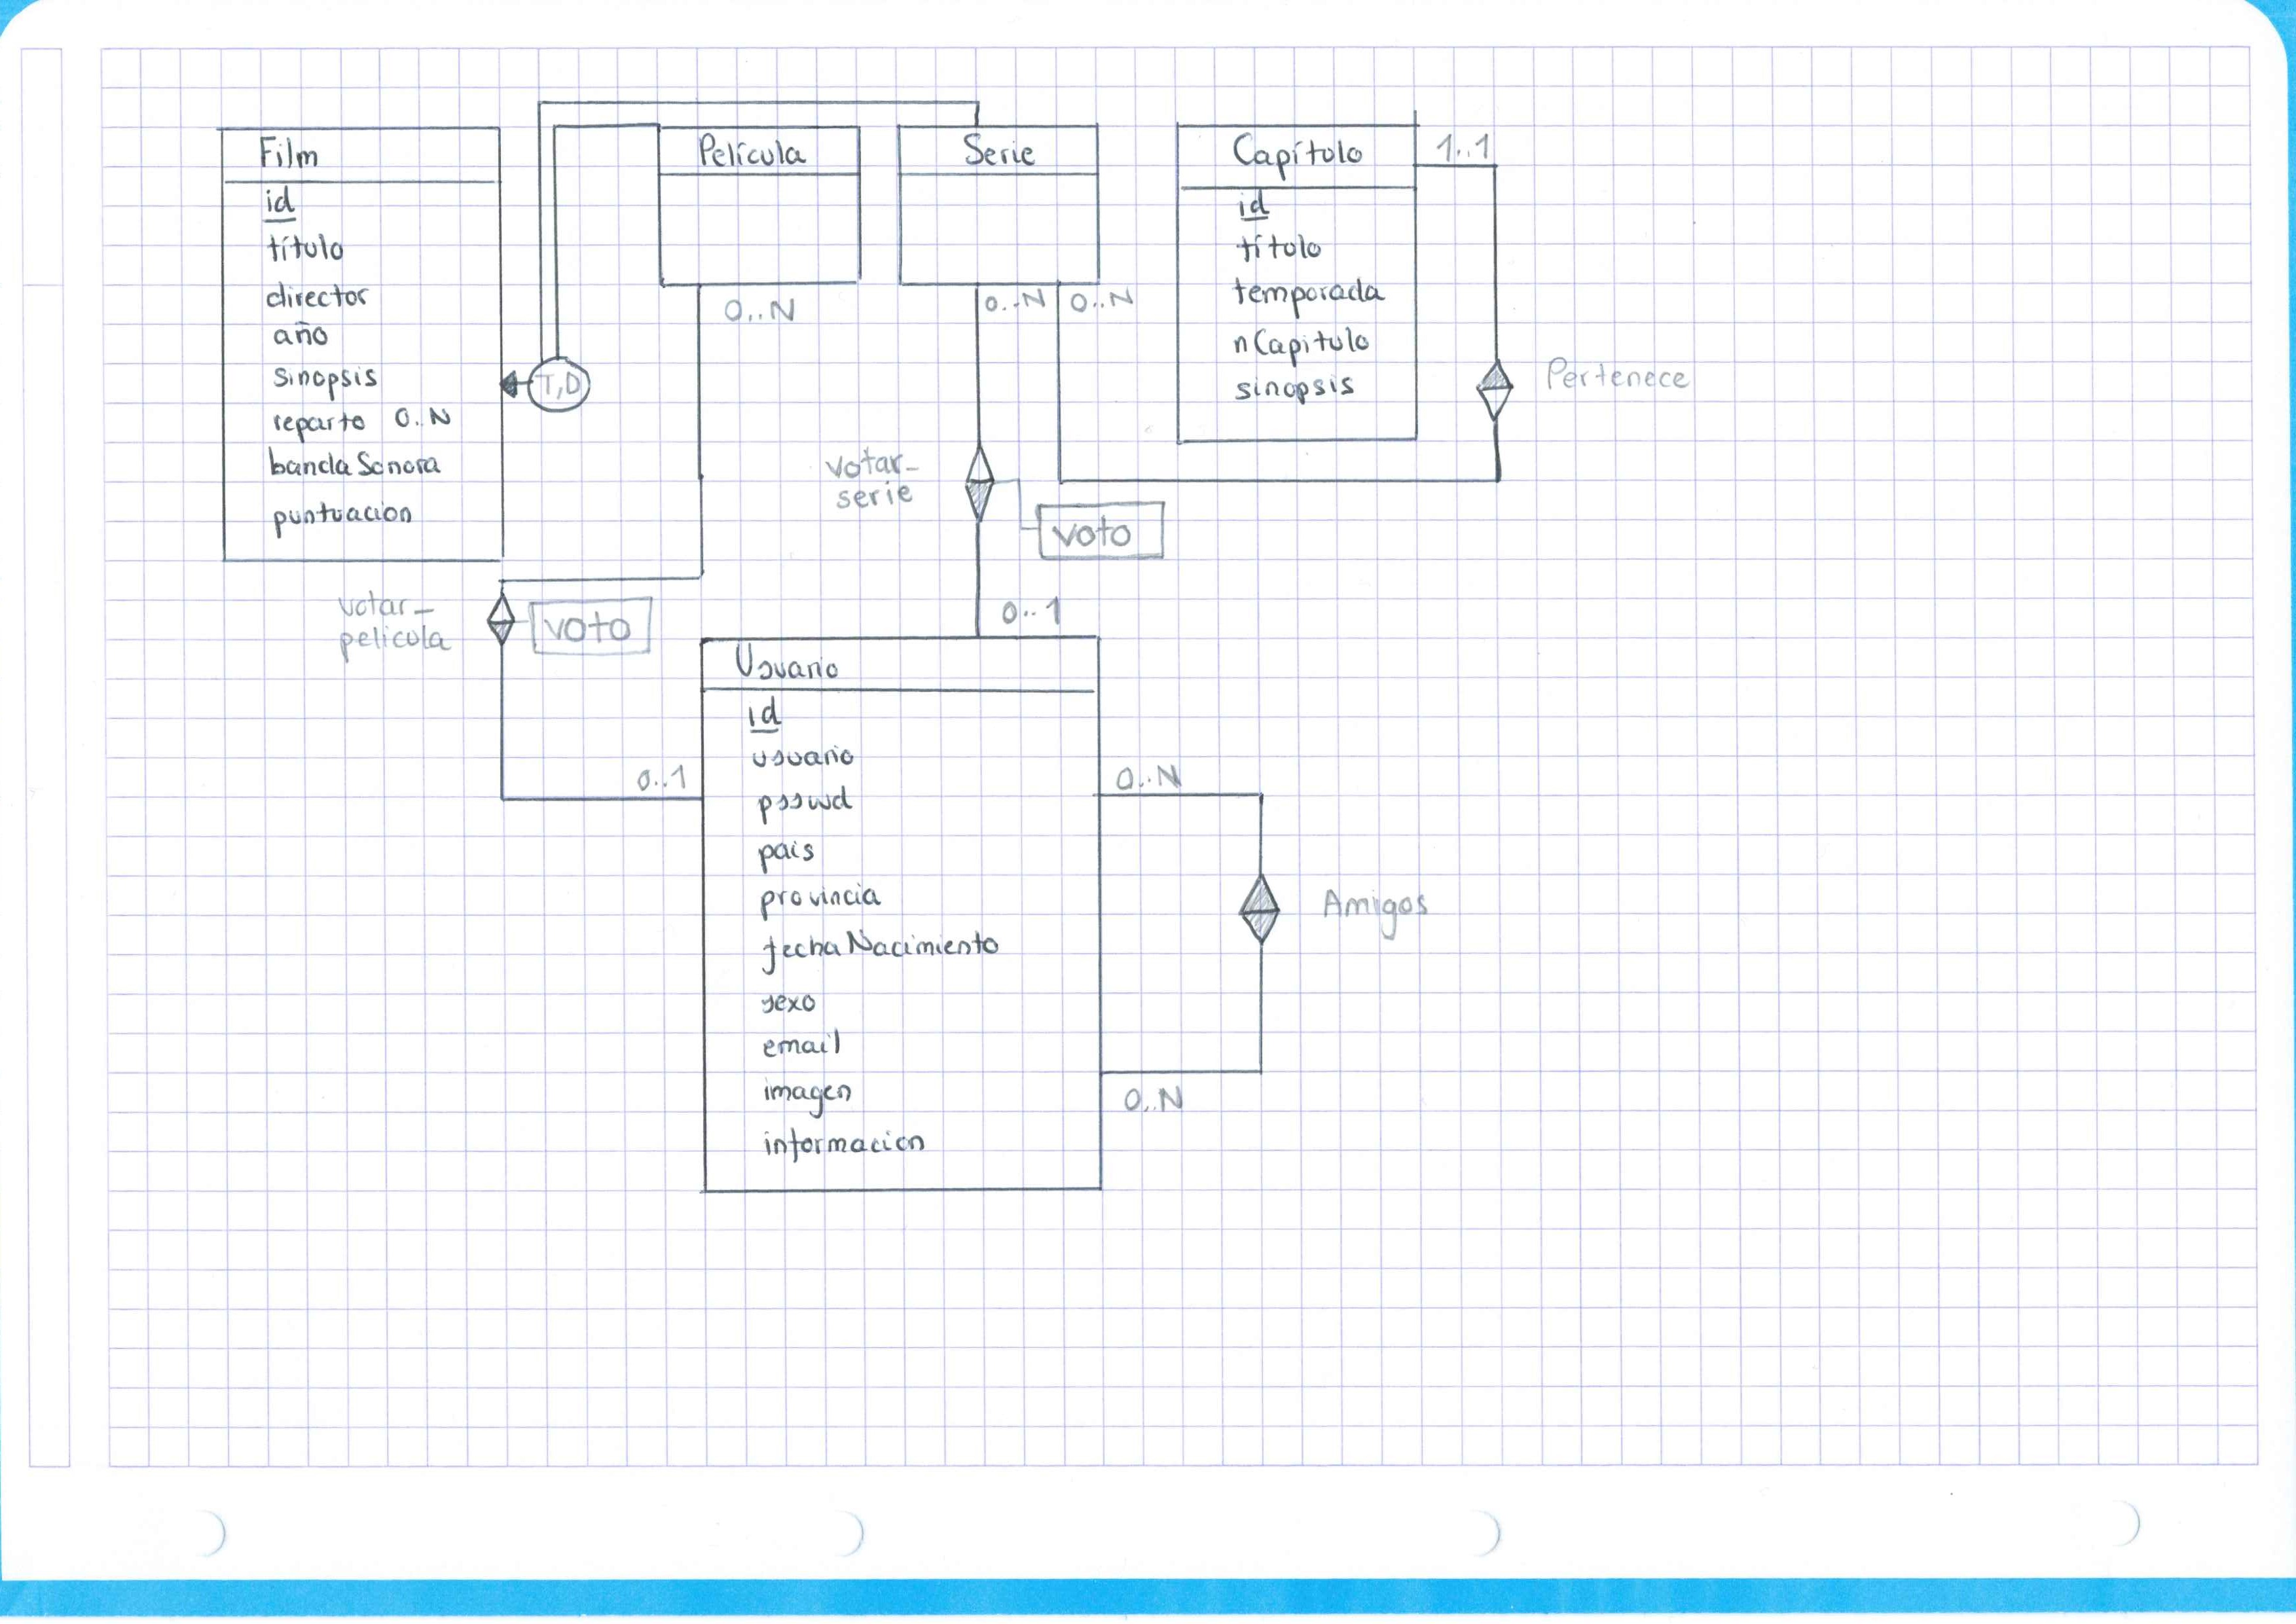 Film
id
título
director
año
sinopsis
reparto 0..N
bandaSonora
puntuacion
T,D
Película
0..N
Serie
0..N 0..N
Capítulo
id
título
temporada
nCapitulo
sinopsis
1..1
Pertenece
votar-
serie
voto
0..1
votar-
pelicula
voto
0..1
Usuario
id
usuario
psswd
pais
provincia
fechaNacimiento
sexo
email
imagen
informacion
0..N
Amigos
0..N